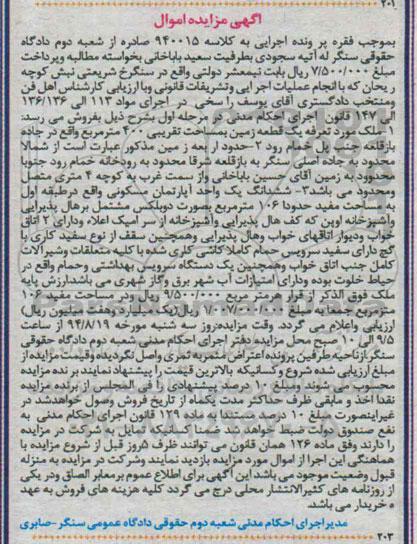 ۲۰۱
آگهی مزایده اموال
بموجب فقره پرونده اجرایی به کلاسه ۹۴۰۰۱۵ صادره از شعبه دوم دادگاه
حقوقی سنگر له آتیه سجودی بطرفیت سعید باباخانی بخواسته مطالبه وپرداخت
مبلغ ۷/۵۰۰/۰۰۰ ریال بابت نیمعشر دولتی واقع در سنگرخ شریعتی نبش کوچه
ریحان که با انجام عملیات اجرایی وتشریفات قانونی وبا ارزیابی کارشناس اهل فن
ومنتخب دادگستری آقای یوسف را سخی در اجرای مواد ۱۱۳ الی ۱۳۶/۱۳۶
الی ۱۴۷ قانون اجرای احکام مدنی در مرحله اول بشرح ذیل بفروش می رسد:
- ملک مورد تعرفه یک قطعه زمین بمساحت تقریبی ۴۰۰ مترمربع واقع در جاده
بازقلعه رودخانه خمام رود ۲-حدود ار بعه ز مین مذکور عبارت است از شمالا
محدود به جاده اصلی سنگر به بازقلعه شرقا محدود به رودخانه خمام رود جنوبا
محدوود به زمین آقای حسین باباخانی واز سمت غرب به کوچه ۴ متری متصل
ومحدود می باشد۳- ششدانگ یک واحد آپارتمان مسکونی واقع درطبقه اول
به مساحت مفید حدودا ۱۰۶ مترمربع بصورت دوبلکس مشتمل برهال پذیرایی
واشپزخانه اوپن که کف هال پذیرایی وآشپزخانه از سر امیک اعلاء ودارای ۲ اتاق
خواب ودیوار اتاقهای خواب وهال پذیرایی وهمچنین سقف از نوع سفید کاری با
گچ دارای سفید سرویس حمام کاملا کاشی کاری شده با کلیه متعلقات وشیرآلات
کامل جنب اتاق خواب وهمچنین یک دستگاه سرویس بهداشتی وحمام واقع در
حیاط خلوت بوده ودارای امتیازات آب شهر برق وگاز شهری می باشدارزش پایه
ملک فوق الذکر از قرار هرمتر مربع ۹/۵۰۰/۰۰۰ ریال ودر مساحت مفید ۱۰۶
مترمربع جمعا به مبلغ ریال(یک میلیارد وهفت میلیون ریال)
ارزیابی واعلام می گردد. وقت مزایده:روز سه شنبه مورخه ۹۴/۸/۱۹ از ساعت
۹/۵ الی ۱۰ صبح محل مزایده دفتر اجرای احکام مدنی شعبه دوم دادگاه حقوقی
سنگر ازناحیه طرفین پرونده اعتراض مثمربه ثمری واصل نگردیده وقیمت مزایده از
مبلغ ارزیابی شده شروع وکسانیکه بالاترین قیمت را پیشنهاد نمایند بر نده مزایده
محسوب می شوند ومبلغ ۱۰ درصد پیشنهادی را فی المجلس از برنده مزایده
نقدا اخذ و مابقی ظرف حداکثر مدت یکماه از تاریخ فروش وصول خواهدشد در
غیراینصورت مبلغ ۱۰ درصد مستندا به ماده ۱۲۹ قانون اجرای احکام مدنی به
نفع صندوق دولت ضبط خواهد شد ضمنا کسانیکه تمایل به شرکت در مزایده
را دارند وفق ماده ۱۲۶ همان قانون می توانند ظرف ۵روز قبل از شروع مزایده با
هماهنگی این اجرا از اموال مورد مزایده بازدید نمایند وشرکت در مزایده به منزله
قبول وضعیت موجود می باشد این آگهی برای اطلاع عموم برمعابر الصاق ودر یکی
از روزنامه های کثیرالانتشار محلی درج می گردد کلیه هزینه های فروش به عهد
ه خریدار می باشد.
مدیر اجرای احکام مدنی شعبه دوم حقوقی دادگاه عمومی سنگر -صابری
۲۰۳